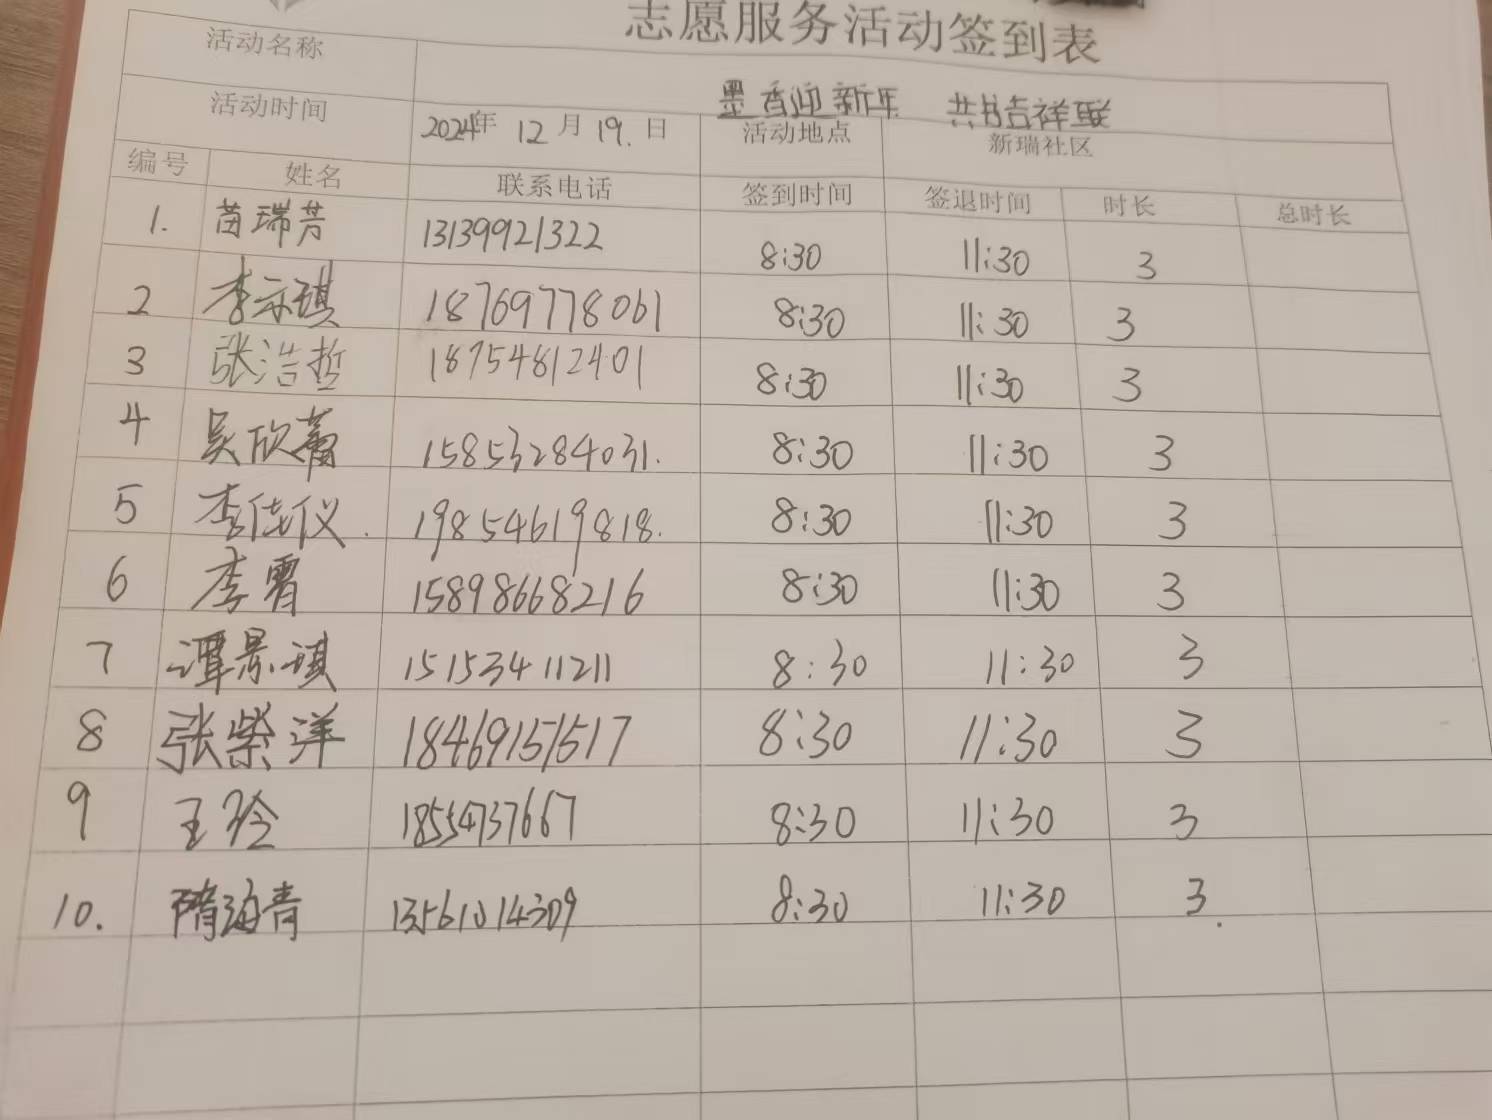 志愿服务活动签到表
活动名称 墨香迎新年 共书吉祥联
活动时间 2024年 12月 19.日 活动地点 新瑞社区
编号 姓名 联系电话 签到时间 签退时间 时长 总时长
1. 苗瑞芳 13139921322 8:30 11:30 3
2 李示琪 18769778061 8:30 11:30 3
3 张浩哲 18754812401 8:30 11:30 3
4 吴欣蕾 15853284031. 8:30 11:30 3
5 李佳仪. 19854619818. 8:30 11:30 3
6 李霄 15898668216 8:30 11:30 3
7 谭景琪 15153411211 8:30 11:30 3
8 张紫洋 18469151517 8:30 11:30 3
9 王玲 18554737667 8:30 11:30 3
10. 隋海青 13561014309 8:30 11:30 3.